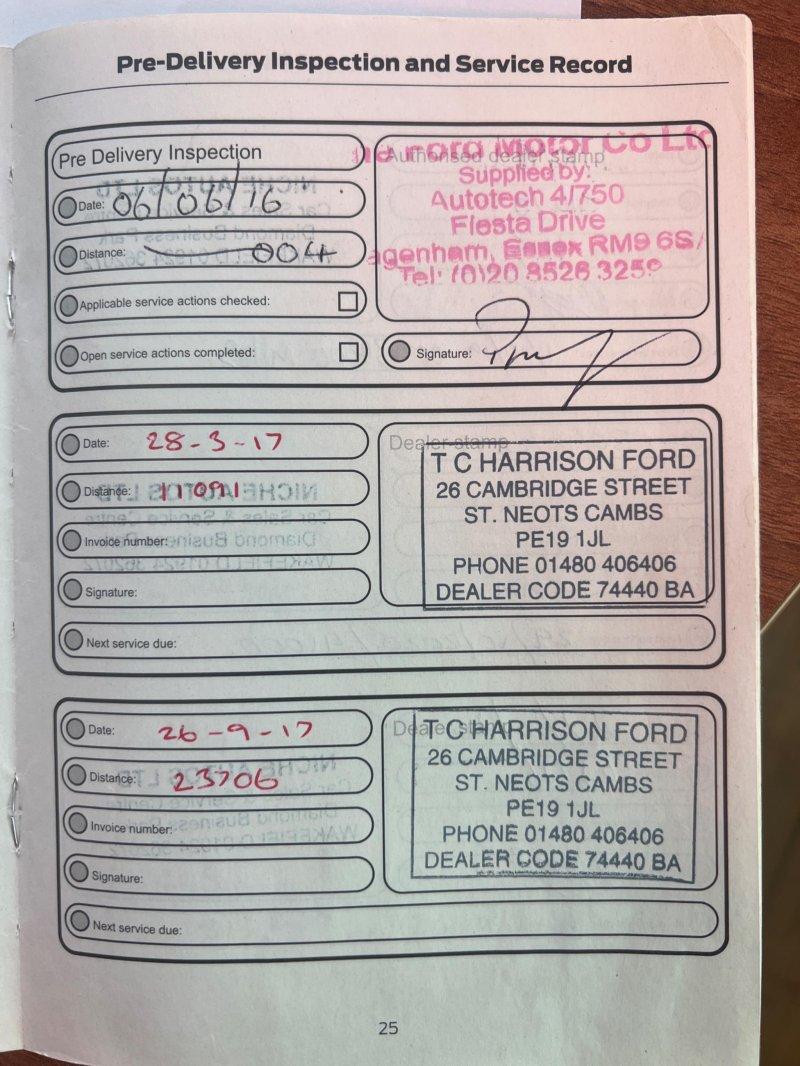 Pre-Delivery Inspection and Service Record
Pre Delivery Inspection
Date: 06/06/16
Distance: 004
Applicable service actions checked:
Open service actions completed:
Authorised dealer stamp
Motor Co Ltd
Supplied by:
Autotech 4/750
Fiesta Drive
agenham, Essex RM9 6S
Tel: (0)20 8526 3259
Signature:
Date: 28-3-17
Distance:
Invoice number:
Signature:
Next service due:
Dealer stamp
T C HARRISON FORD
26 CAMBRIDGE STREET
ST. NEOTS CAMBS
PE19 1JL
PHONE 01480 406406
DEALER CODE 74440 BA
Date: 26-9-17
Distance: 23706
Invoice number:
Signature:
Next service due:
Dealer stamp
T C HARRISON FORD
26 CAMBRIDGE STREET
ST. NEOTS CAMBS
PE19 1JL
PHONE 01480 406406
DEALER CODE 74440 BA
25